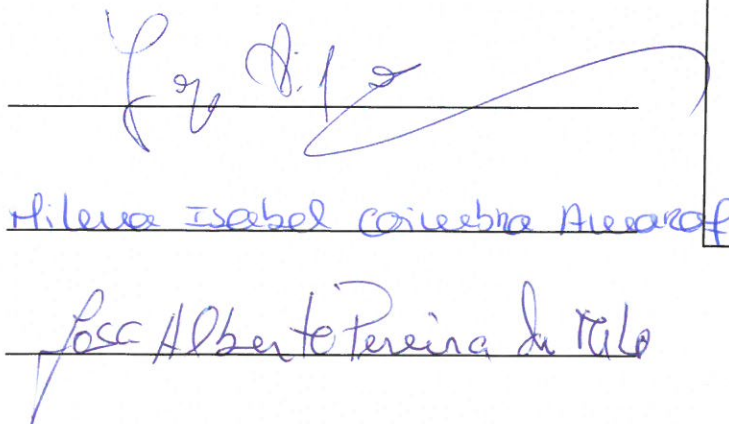 Milena Isabel Coimbra Amaral
José Alberto Pereira de Melo